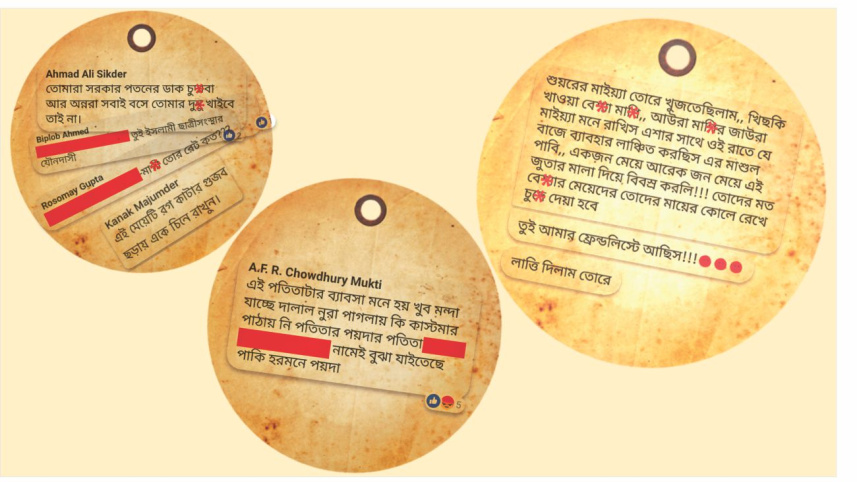 Ahmad Ali Sikder
তোমারা সরকার পতনের ডাক চু বা
আর অন্নরা সবাই বসে তোমার দু খাইবে
তাই না।
Biplob Ahmed
তুই ইসলামী ছাত্রীসংস্থার
যৌনদাসী
2
Rosomay Gupta
মা তোর রেট কত???
Kanak Majumder
এই মেয়েটি রগ কাটার গুজব
ছড়ায় একে চিনে রাখুন।
A.F. R. Chowdhury Mukti
এই পতিতাটার ব্যাবসা মনে হয় খুব মন্দা
যাচ্ছে দালাল নুরা পাগলায় কি কাস্টমার
পাঠায় নি পতিতার পয়দার পতিতা
নামেই বুঝা যাইতেছে
পাকি হরমনে পয়দা
5
শুয়রের মাইয়্যা তোরে খুজতেছিলাম,, খিছকি
খাওয়া বে া মা ,, আউরা মা র জাউরা
মাইয়্যা মনে রাখিস এশার সাথে ওই রাতে যে
বাজে ব্যাবহার লাঞ্চিত করছিস এর মাশুল
পাবি,, একজন মেয়ে আরেক জন মেয়ে এই
জুতার মালা দিয়ে বিবস্র করলি!!! তোদের মত
বে ার মেয়েদের তোদের মায়ের কোলে রেখে
চু দেয়া হবে
তুই আমার ফ্রেন্ডলিস্টে আছিস!!!
লাত্তি দিলাম তোরে